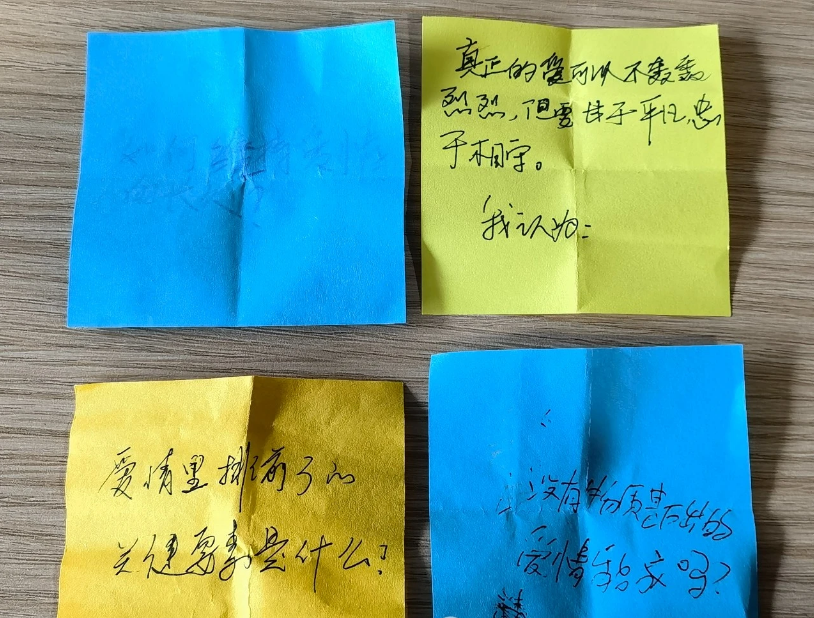 如何维持爱情
真正的爱可以不轰轰
烈烈，但要甘于平凡，忠
于相守。
我认为：
爱情里排前3的
关键要素是什么？
没有物质基础的
爱情能
吗？